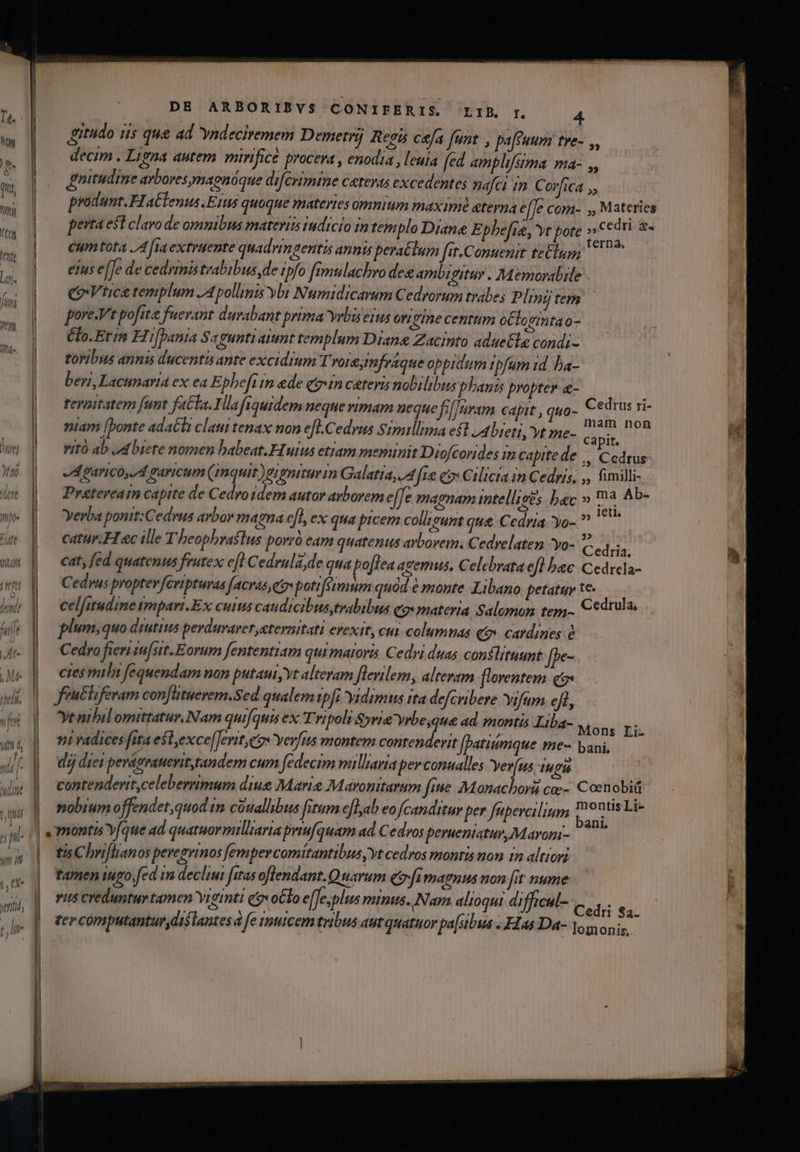 DE ARBORIBVS CONIFERIS. LIB. I. 4
gitudo iis quæ ad vndeciremem Demetrij Regis cæsa sunt, passuum tre- ,,
decim. Ligna autem mirificè procera, enodia, leuia sed amplissima ma- ,,
gnitudine arbores, magnóque discrimine cæteras excedentes nasci in Corsica ,,
produnt. Hactenus. Eius quoque materies omnium maximè æterna esse com- ,, Materies
perta est clavo de omnibus materiis iudicio in templo Dianæ Ephesiæ, vt pote ,, cedri æ-
cum tota Asia extruente quadringentis annis peractum sit. Conuenit tectum terna,
eius esse de cedrinis trabibus, de ipso simulachro deæ ambigitur. Memorabile
& Vticæ templum Apollinis vbi Numidicarum Cedrorum trabes Plinij tem
pore. Vt positæ fuerant durabant prima vrbis eius origine centum octoginta o-
cto. Et in Hispania Sagunti aiunt templum Dianæ Zacinto aduectæ condi-
toribus annis ducentis ante excidium Troiæ, infráque oppidum ipsum id ha-
beri, Lacunaria ex ea Ephesi in æde & in cæteris nobilibus phanis propter æ-
ternitatem sunt facta. Illa siquidem neque rimam neque fissuram capit, quo- Cedrus ri-
niam sponte adacti claui tenax non est. Cedrus Simillima est Abieti, vt me- mam non capit.
ritò ab Abiete nomen habeat. Huius etiam meminit Dioscorides in capite de ,, Cedrus
Agarico, Agaricum (inquit) gignitur in Galatia, Asia & Cilicia in Cedris. ,, simili-
Præterea in capite de Cedro idem autor arborem esse magnam intelligēs hæc ,, ma Ab-
verba ponit: Cedrus arbor magna est, ex qua picem colligunt quæ Cedria vo- ,, ieti.
catur. Hæc ille Theophrastus porrò eam quatenus arborem. Cedrelaten vo- ,, Cedria.
cat, sed quatenus frutex est Cedrulā, de qua postea agemus. Celebrata est hæc Cedrela-
Cedrus propter scripturas sacras, & potissimum quòd è monte Libano petatur te.
celsitudine impari. Ex cuius caudicibus, trabibus & materia Salomon tem- Cedrula,
plum, quo diutius perduraret, æternitati erexit, cui columnas & cardines è
Cedro fieri iussit. Eorum sententiam qui maioris Cedri duas constituunt spe-
cies mihi sequendam non putaui, vt alteram sterilem, alteram florentem &
fructiferam constituerem. Sed qualem ipsi vidimus ita describere visum est,
vt nihil omittatur. Nam quisquis ex Tripoli Syriæ vrbe, quæ ad montis Liba- Mons Li-
ni radices sita est, excesserit, & versus montem contenderit spatiúmque me- bani,
dij diei peragrauerit, tandem cum sedecim milliaria per conualles versus iugū
contenderit, celeberrimum diuæ Mariæ Maronitarum siue Monachorū cœ- Cœnobiū
nobium offendet, quod in cōuallibus situm est, ab eo scanditur per supercilium montis Li-
montis vsque ad quatuor milliaria priusquam ad Cedros perueniatur, Maroni- bani.
tis Christianos peregrinos semper comitantibus, vt cedros montis non in altiori
tamen iugo, sed in decliui sitas ostendant. Quarum & si magnus non sit nume
rus creduntur tamen viginti & octo esse, plus minus. Nam alioqui difficul- Cedri Sa-
ter computantur, distantes à se inuicem tribus aut quatuor passibus. Has Da- lomonis.